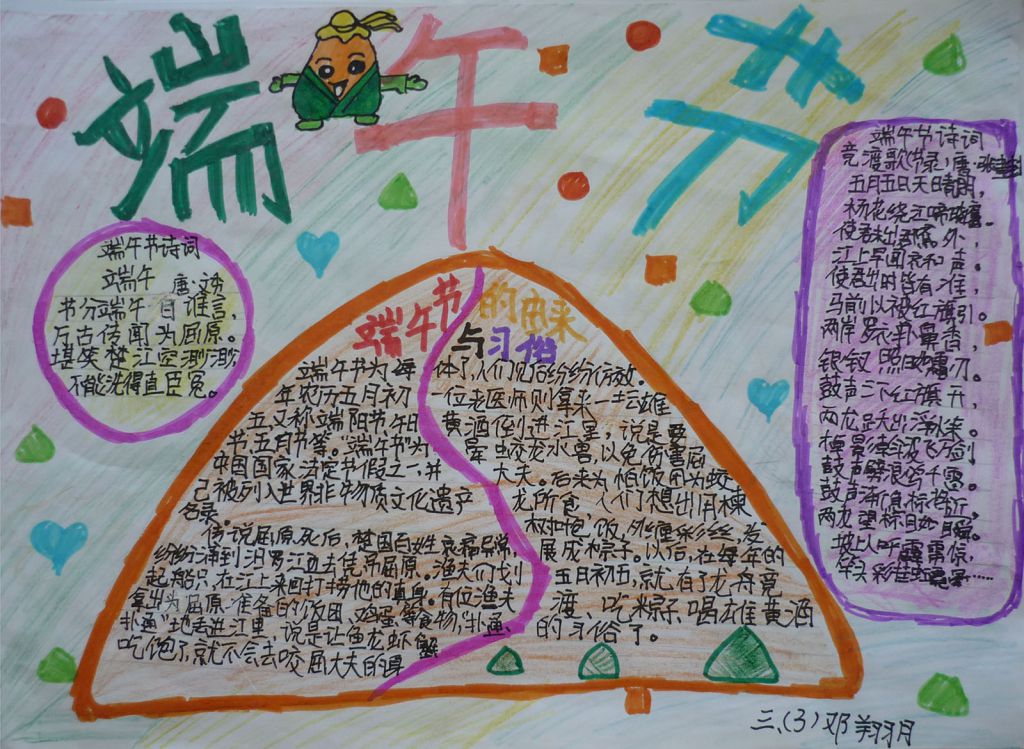 端午节
端午节诗词
端午 唐·文秀
节分端午自谁言，
万古传闻为屈原。
堪笑楚江空渺渺，
不能洗得直臣冤。
端午节的由来
与习俗
端午节为每
年农历五月初
五又称端阳节午日
节五月节等。“端午节”为
中国国家法定节假之一，并
已被列入世界非物质文化遗产
名录。
传说屈原死后，楚国百姓哀痛异常，
纷纷涌到汨罗江边去凭吊屈原。渔夫们划
起船只，在江上来回打捞他的真身。有位渔夫
拿出为屈原准备的饭团、鸡蛋等食物，“扑通、
扑通”地丢进江里，说是让鱼龙虾蟹
吃饱了，就不会去咬屈大夫的身
体了，人们见后纷纷仿效。
一位老医师则拿来一坛雄
黄酒倒进江里，说是要
晕蛟龙水兽，以免伤害屈
大夫。后来为怕饭团为蛟
龙所食，人们想出用楝
树叶包饭，外缠彩丝，发
展成棕子。以后，在每年的
五月初五，就有了龙舟竞
渡、吃粽子、喝雄黄酒
的习俗了。
端午节诗词
竞渡歌(节录)唐·张建封
五月五日天晴朗，
杨花绕江啼晓莺。
使君未出郡斋外，
江上早闻齐和声。
使君出时皆有准，
马前以被红旗引。
两岸罗衣 鼻香，
银钗照日如霜刃。
鼓声三下红旗开，
两龙跃出浮水来。
棹影斡波飞万剑
鼓声劈浪鸣千雷。
鼓声渐急标将近，
两龙望标目如瞬。
坡上人呼霹雳惊，
竿头彩挂虹霓晕……
三、(3)邓翔月